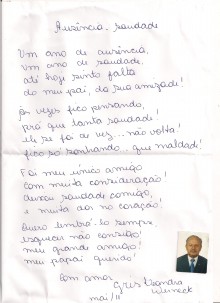 Ausência - saudade
Um ano de ausência,
um ano de saudade
até hoje sinto falta
do meu pai, da sua amizade!
Às vezes fico pensando,
prá que tanta saudade!
ele se foi de vez... não volta!
fico só sonhando... que maldade!
Foi meu único amigo
com muita consideração!
deixou saudade comigo,
e muita dor no coração!
Quero lembrá-lo sempre,
esquecer não consigo!
meu grande amigo!
meu papai querido!
Com amor
Cris Tzondra
Werneck
mai/11